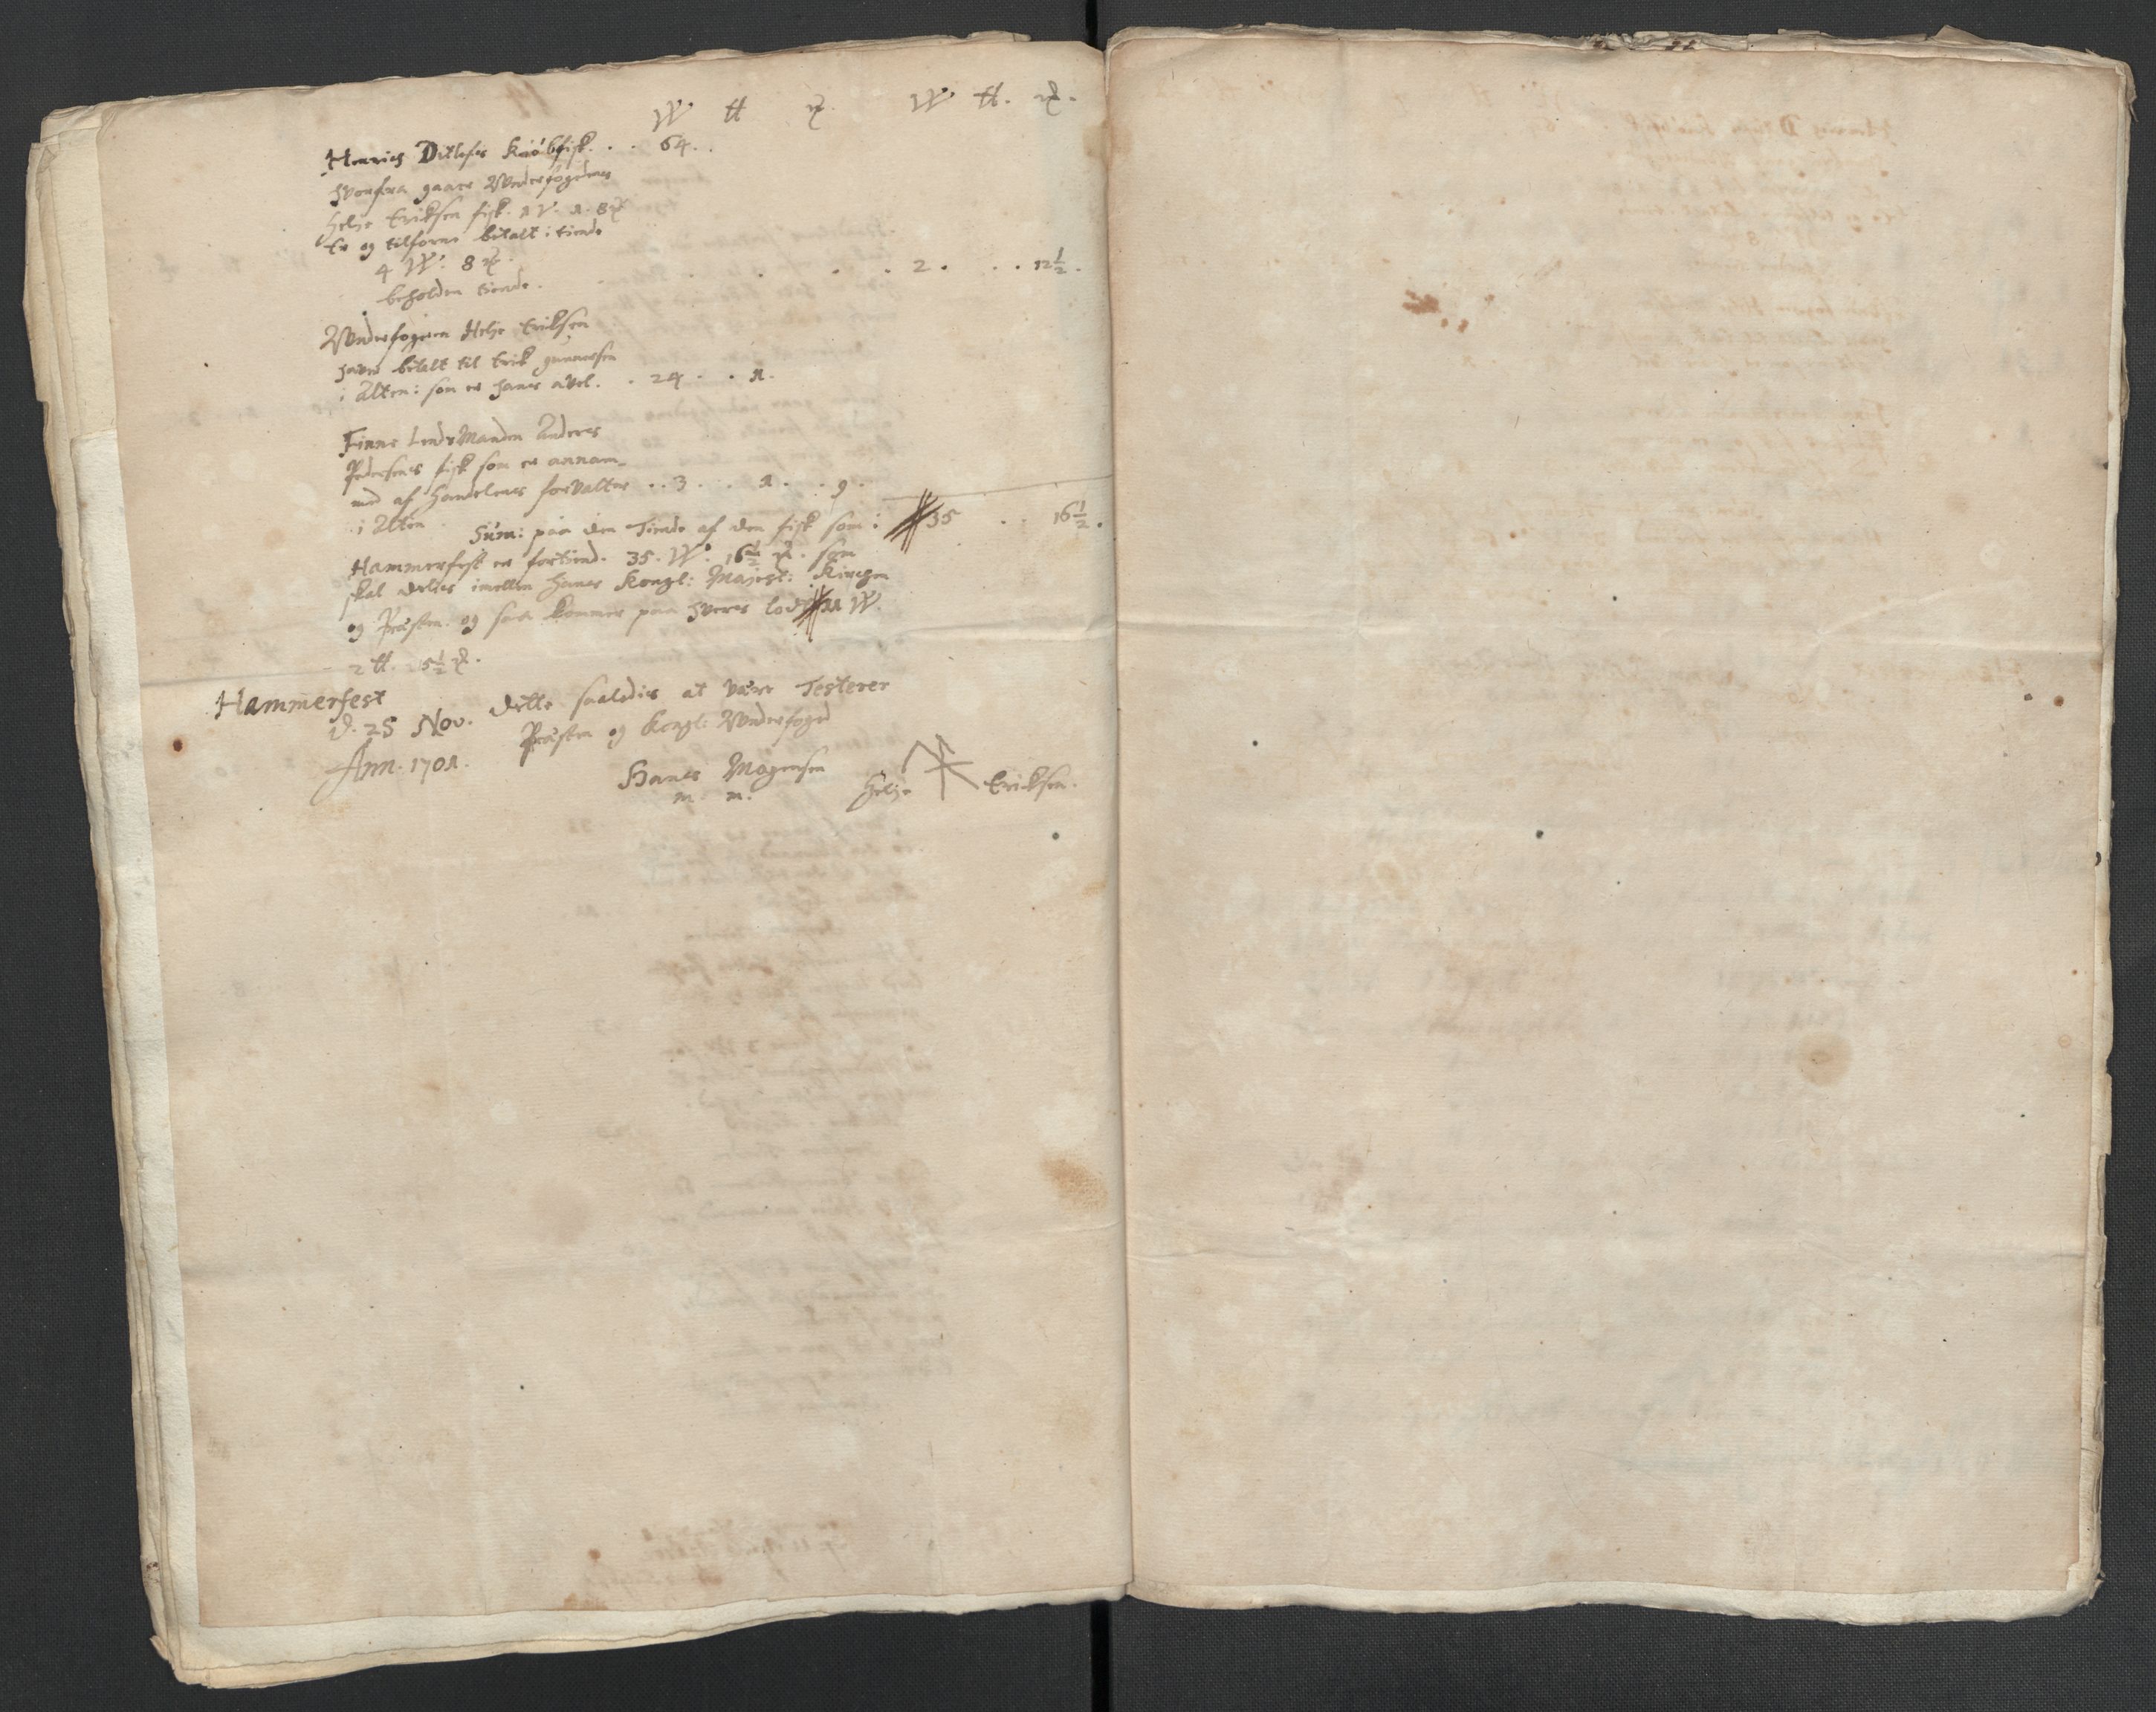 W. tt ℔. W. tt. ℔.
Henrich Ditlefes Kiöbfisk. . . 64. .
hvorfra gaaer Underfogdens
Helje Eriksen fisk.
Er og tilforne bitalt i tiende
4 W. 8 ℔.
beholden tiende. . . . . 2 . . . 12½.
Underfogden Helje Eriksen
haver bitalt til Erik gunnersen
i Alten: som er hans avel. . 24 . . 1.
Finne LendsManden Anders
Pedersens fisk som er annam-
med af Handelens forvalter . . 3 . . 1 . . 9 .
i Alten .
Sum: paa den Tiende af den fisk som i 35 . . 16½ .
Hammerfest er fortiend. 35. W. 16½ ℔. som
skal delies imellem Hans Kongl: Majest: Kirchen
og Præsten. og saa kommer paa hveres lod 11 W.
2 tt. 15½ ℔.
Hammerfest
d. 25 Nov.
Ann. 1701.
Dette saaledis at være Testerer
Præsten og Kongl: Underfoged
Hanes Mogensen
m. m.
Helje Eriksen.